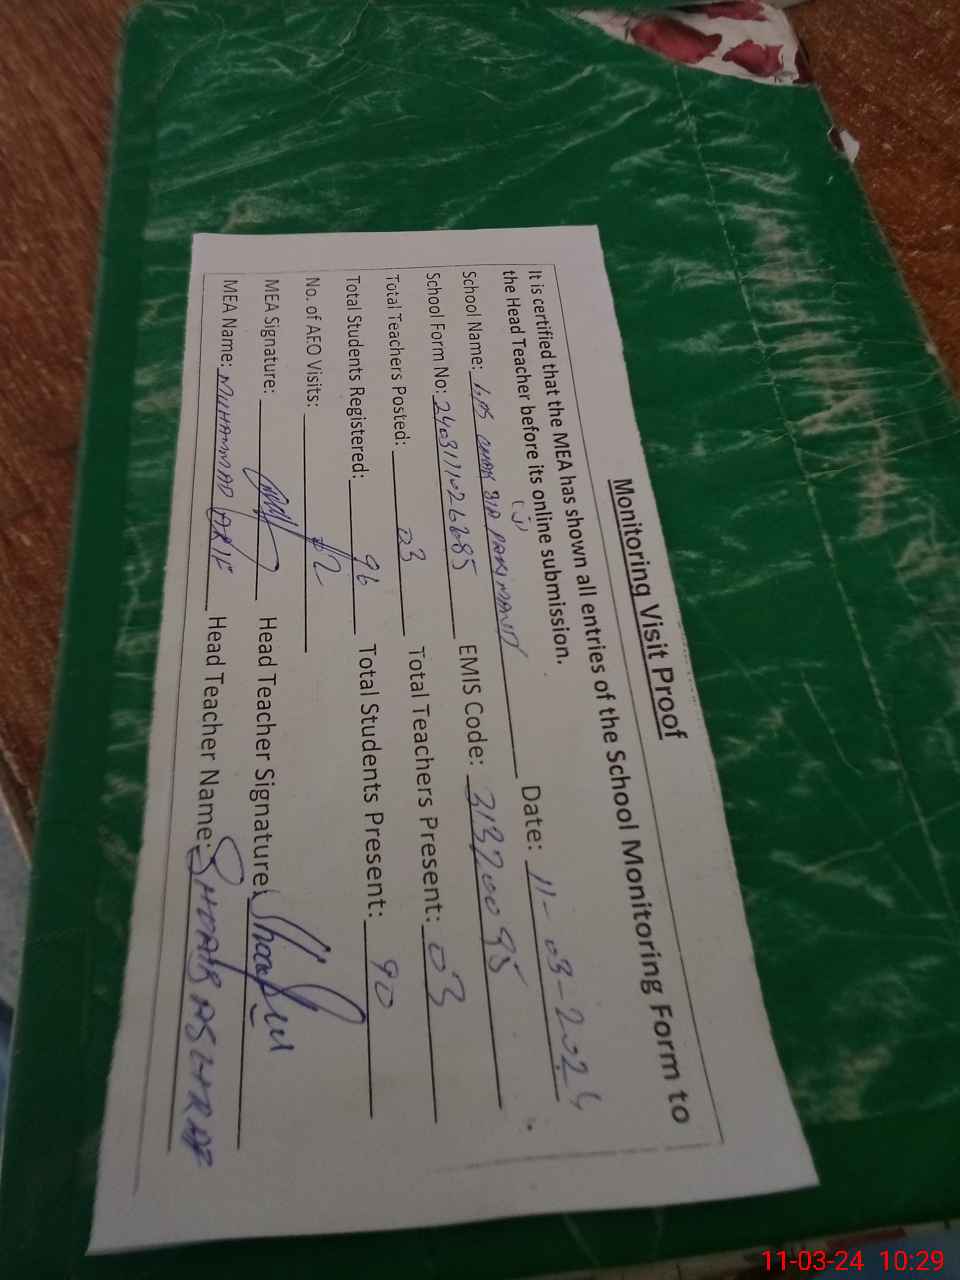 Monitoring Visit Proof
It is certified that the MEA has shown all entries of the School Monitoring Form to
the Head Teacher before its online submission.
School Name: GPS CHAK 31A Date: 11-03-2024
School Form No: EMIS Code: 31320095
Total Teachers Posted: 03 Total Teachers Present: 03
Total Students Registered: 96 Total Students Present: 90
No. of AEO Visits:
MEA Signature: Head Teacher Signature:
MEA Name: MUHAMMAD ARIF Head Teacher Name: SHOAIB ASHRAF
11-03-24 10:29